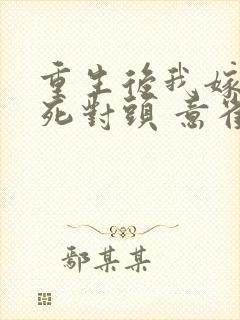 重生後我嫁
死對頭 意
鄢某某